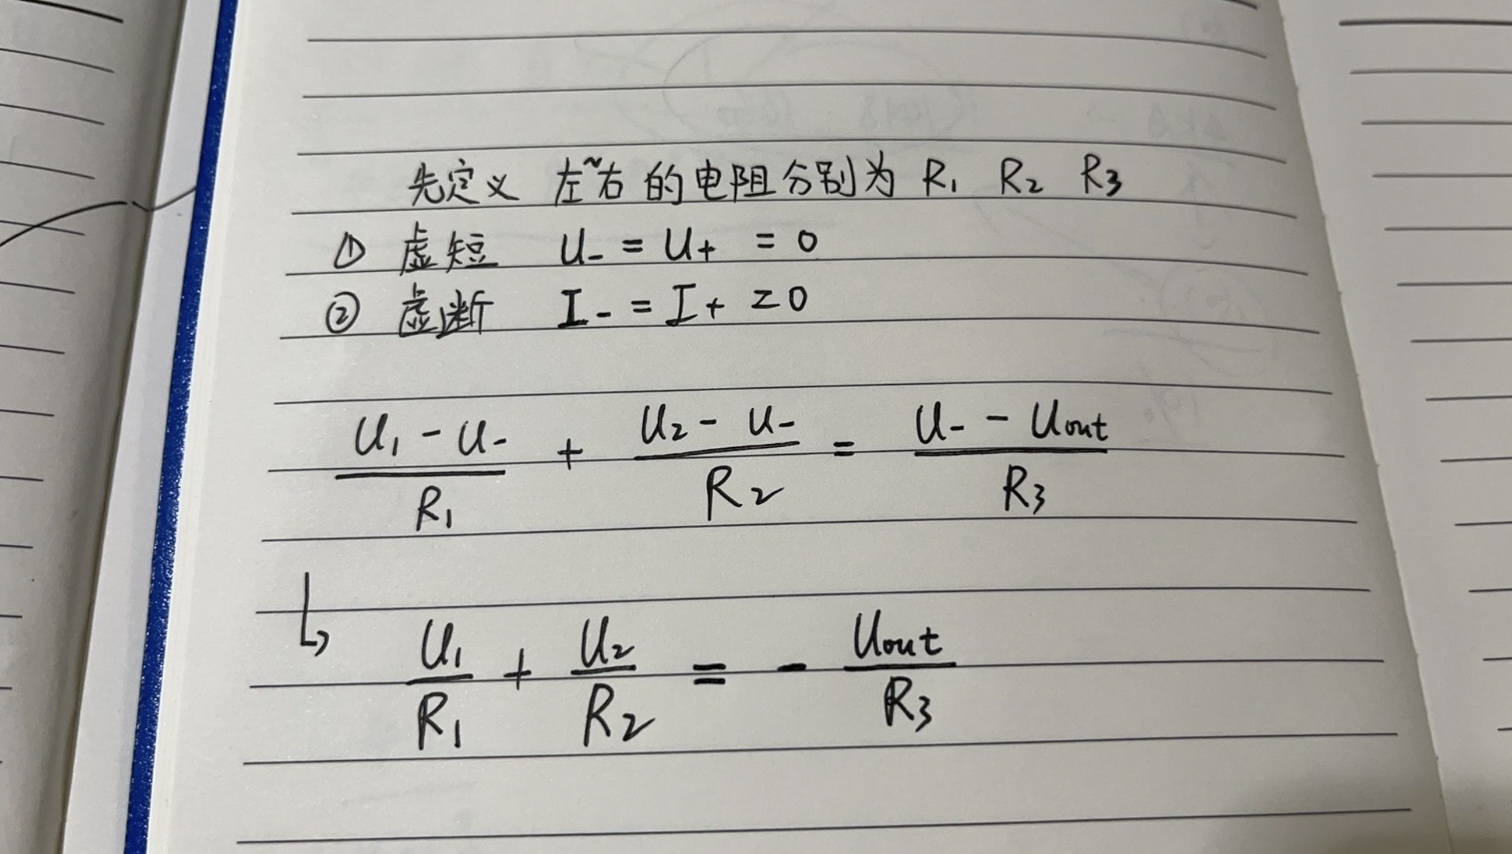 先定义 左~右的电阻分别为 R₁ R₂ R₃
① 虚短 U₋ = U₊ = 0
② 虚断 I₋ = I₊ = 0
(U₁ - U₋)/R₁ + (U₂ - U₋)/R₂ = (U₋ - Uout)/R₃
↳ U₁/R₁ + U₂/R₂ = - Uout/R₃